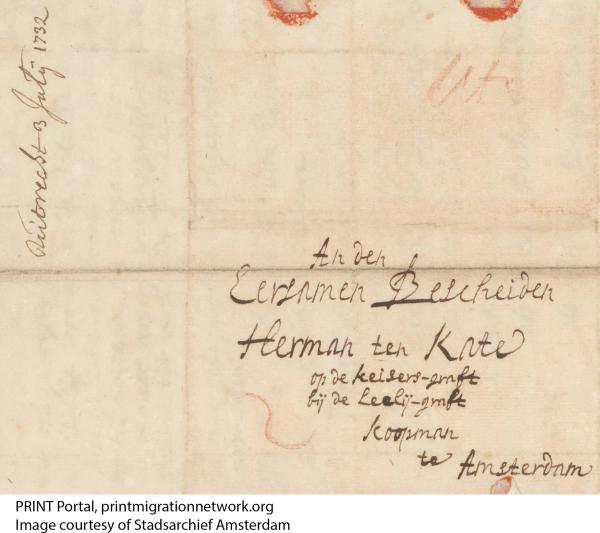 3 July 1732
An den
Eersamen Bescheiden
Herman ten Kate
op de keisers-graft
bij de Leelij-graft
Koopman
te Amsterdam
PRINT Portal, printmigrationnetwork.org
Image courtesy of Stadsarchief Amsterdam